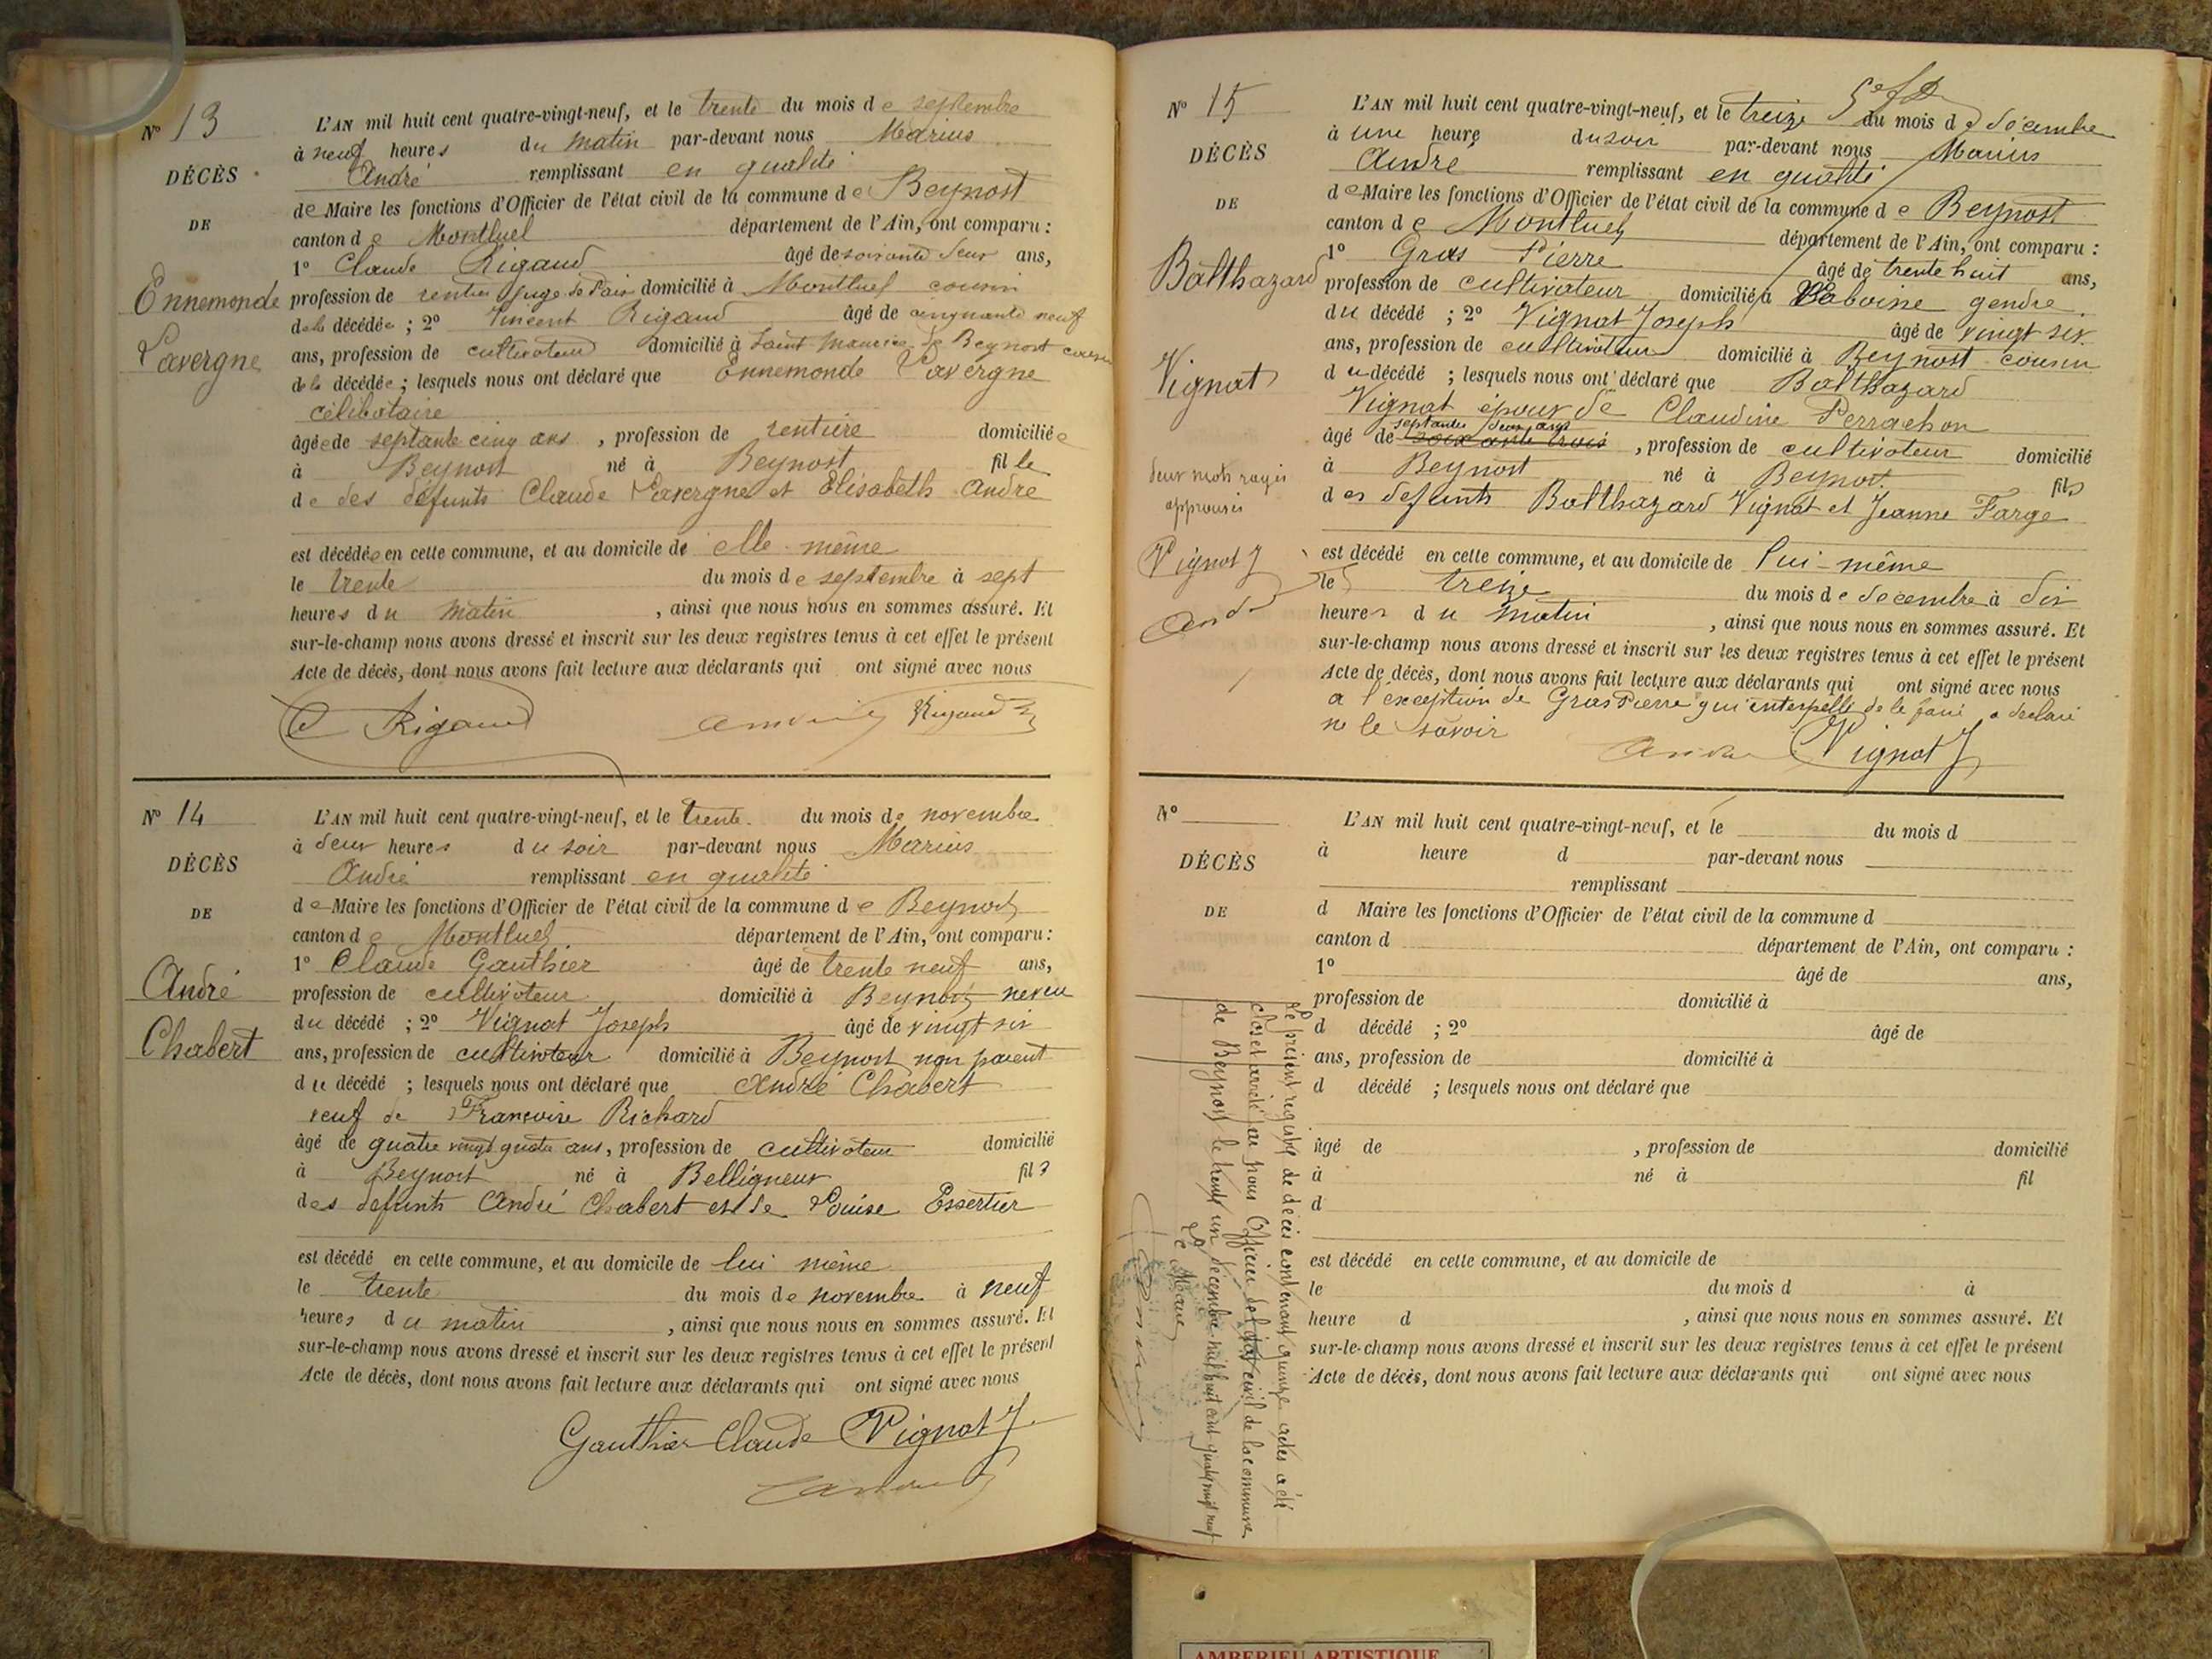 Nº 13
DÉCÈS
DE
Ennemonde
Lavergne
L'AN mil huit cent quatre-vingt-neuf, et le trente du mois de septembre
à neuf heures du matin par-devant nous Marius
André remplissant en qualité
de Maire les fonctions d'Officier de l'état civil de la commune de Beynost
canton de Montluel département de l'Ain, ont comparu :
1º Claude Rigaud âgé de soixante deux ans,
profession de rentier juge de Paix domicilié à Montluel cousin
de la décédée ; 2º Vincent Rigaud âgé de cinquante neuf
ans, profession de cultivateur domicilié à Saint Maurice de Beynost cousin
de la décédée ; lesquels nous ont déclaré que Ennemonde Lavergne
célibataire
âgée de septante cinq ans , profession de rentière domiciliée
à Beynost né à Beynost fille
de des défunts Claude Lavergne et Elisabeth André
est décédée en cette commune, et au domicile de elle même
le trente du mois de septembre à sept
heures du matin , ainsi que nous nous en sommes assuré. Et
sur-le-champ nous avons dressé et inscrit sur les deux registres tenus à cet effet le présent
Acte de décès, dont nous avons fait lecture aux déclarants qui ont signé avec nous
C Rigaud André Rigaud
Nº 14
DÉCÈS
DE
André
Chabert
L'AN mil huit cent quatre-vingt-neuf, et le trente du mois de novembre
à deux heures du soir par-devant nous Marius
André remplissant en qualité
de Maire les fonctions d'Officier de l'état civil de la commune de Beynost
canton de Montluel département de l'Ain, ont comparu :
1º Claude Gauthier âgé de trente neuf ans,
profession de cultivateur domicilié à Beynost neveu
du décédé ; 2º Vignat Joseph âgé de vingt six
ans, profession de cultivateur domicilié à Beynost non parent
du décédé ; lesquels nous ont déclaré que André Chabert
veuf de Françoise Richard
âgé de quatre vingt quatre ans, profession de cultivateur domicilié
à Beynost né à Belligneux fils
des défunts André Chabert et de Louise Essertier
est décédé en cette commune, et au domicile de lui même
le trente du mois de novembre à neuf
heures du matin , ainsi que nous nous en sommes assuré. Et
sur-le-champ nous avons dressé et inscrit sur les deux registres tenus à cet effet le présent
Acte de décès, dont nous avons fait lecture aux déclarants qui ont signé avec nous
Gauthier Claude Vignat J
André
Nº 15
DÉCÈS
DE
Balthazard
Vignat
deux mots rayés
approuvés
Vignat J
André
L'AN mil huit cent quatre-vingt-neuf, et le treize du mois de décembre
à une heure du soir par-devant nous Marius
André remplissant en qualité
de Maire les fonctions d'Officier de l'état civil de la commune de Beynost
canton de Montluel département de l'Ain, ont comparu :
1º Gras Pierre âgé de trente huit ans,
profession de cultivateur domicilié à Laboisse gendre
du décédé ; 2º Vignat Joseph âgé de vingt six
ans, profession de cultivateur domicilié à Beynost cousin
du décédé ; lesquels nous ont déclaré que Balthazard
Vignat époux de Claudine Perrachon
septante deux ans
âgé de soixante trois , profession de cultivateur domicilié
à Beynost né à Beynost fils
des défunts Balthazard Vignat et Jeanne Farge
est décédé en cette commune, et au domicile de lui-même
le treize du mois de décembre à dix
heures du matin , ainsi que nous nous en sommes assuré. Et
sur-le-champ nous avons dressé et inscrit sur les deux registres tenus à cet effet le présent
Acte de décès, dont nous avons fait lecture aux déclarants qui ont signé avec nous
a l'exception de Gras Pierre qui interpellé de le faire a déclaré
ne le savoir
André Vignat J
Nº
DÉCÈS
DE
L'AN mil huit cent quatre-vingt-neuf, et le du mois d
à heure d par-devant nous
remplissant
d Maire les fonctions d'Officier de l'état civil de la commune d
canton d département de l'Ain, ont comparu :
1º âgé de ans,
profession de domicilié à
d décédé ; 2º âgé de
ans, profession de domicilié à
d décédé ; lesquels nous ont déclaré que
âgé de , profession de domicilié
à né à fil
d
est décédé en cette commune, et au domicile de
le du mois d à
heure d , ainsi que nous nous en sommes assuré. Et
sur-le-champ nous avons dressé et inscrit sur les deux registres tenus à cet effet le présent
Acte de décès, dont nous avons fait lecture aux déclarants qui ont signé avec nous
Le présent registre de décès contenant quinze actes a été
clos et arrêté par nous Officier de l'état civil de la commune
de Beynost le trente un décembre mil huit cent quatre vingt neuf
Le Maire
André
AMBERIEU ARTISTIQUE